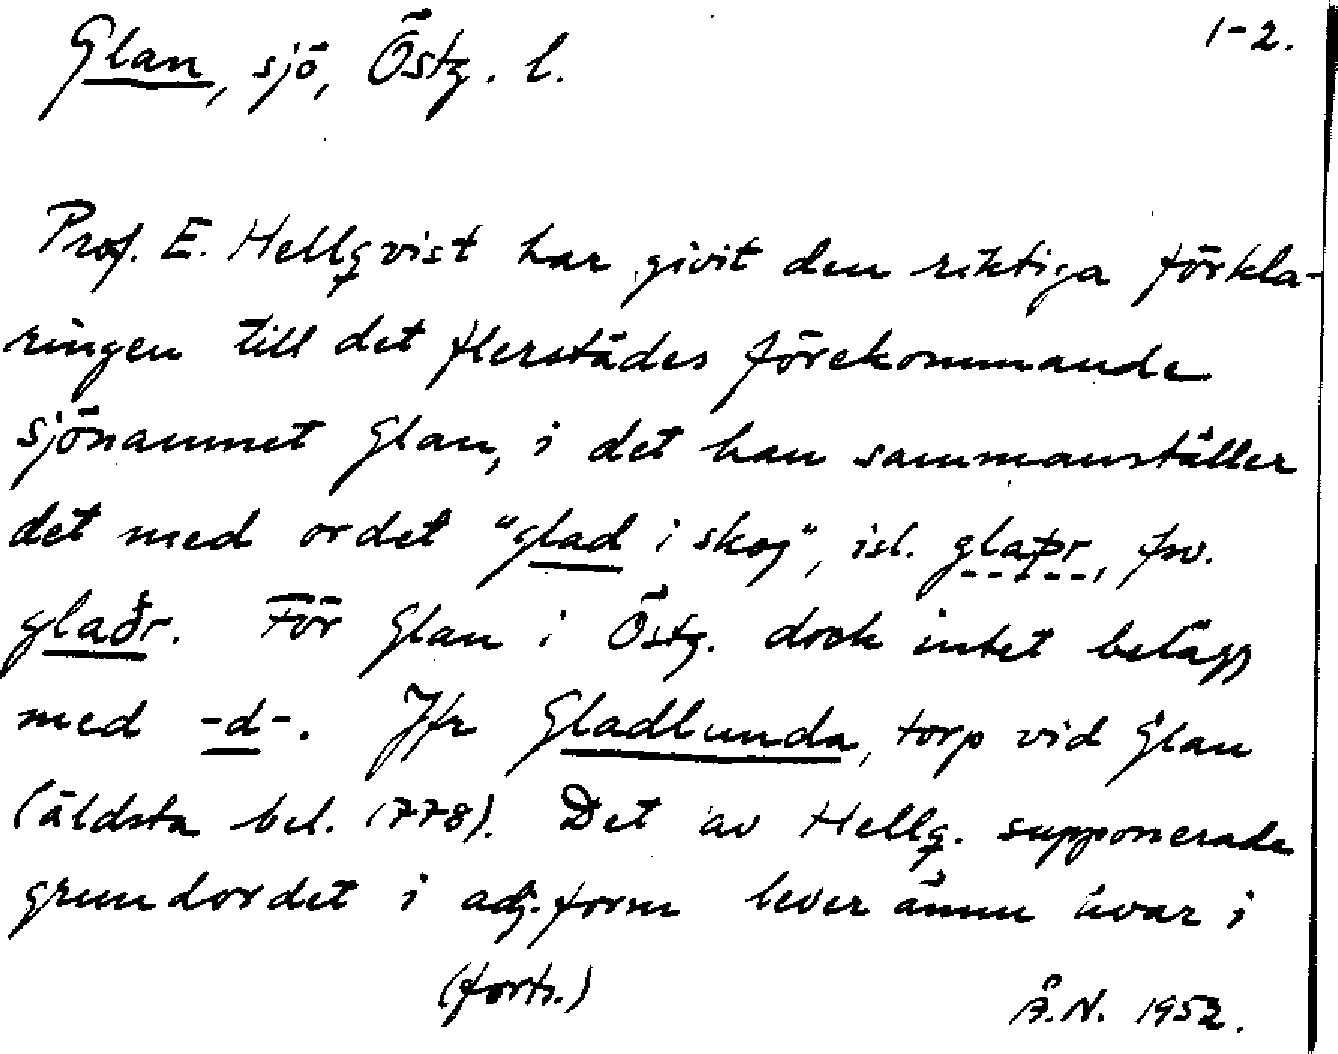 Glan, sjö, Östg. l.
1-2.
Prof. E. Hellqvist har givit den riktiga förkla-
ringen till det flerstädes förekommande
sjönamnet Glan, i det han sammanställer
det med ordet "glad i skog", isl. glaþr, fsv.
glaðr. För Glan i Östg. dock intet belägg
med -d-. Jfr Gladlunda, torp vid Glan
(äldsta bel. 1778). Det av Hellq. supponerade
grundordet i adj.form lever ännu kvar i
(forts.)
Å.N. 1952.